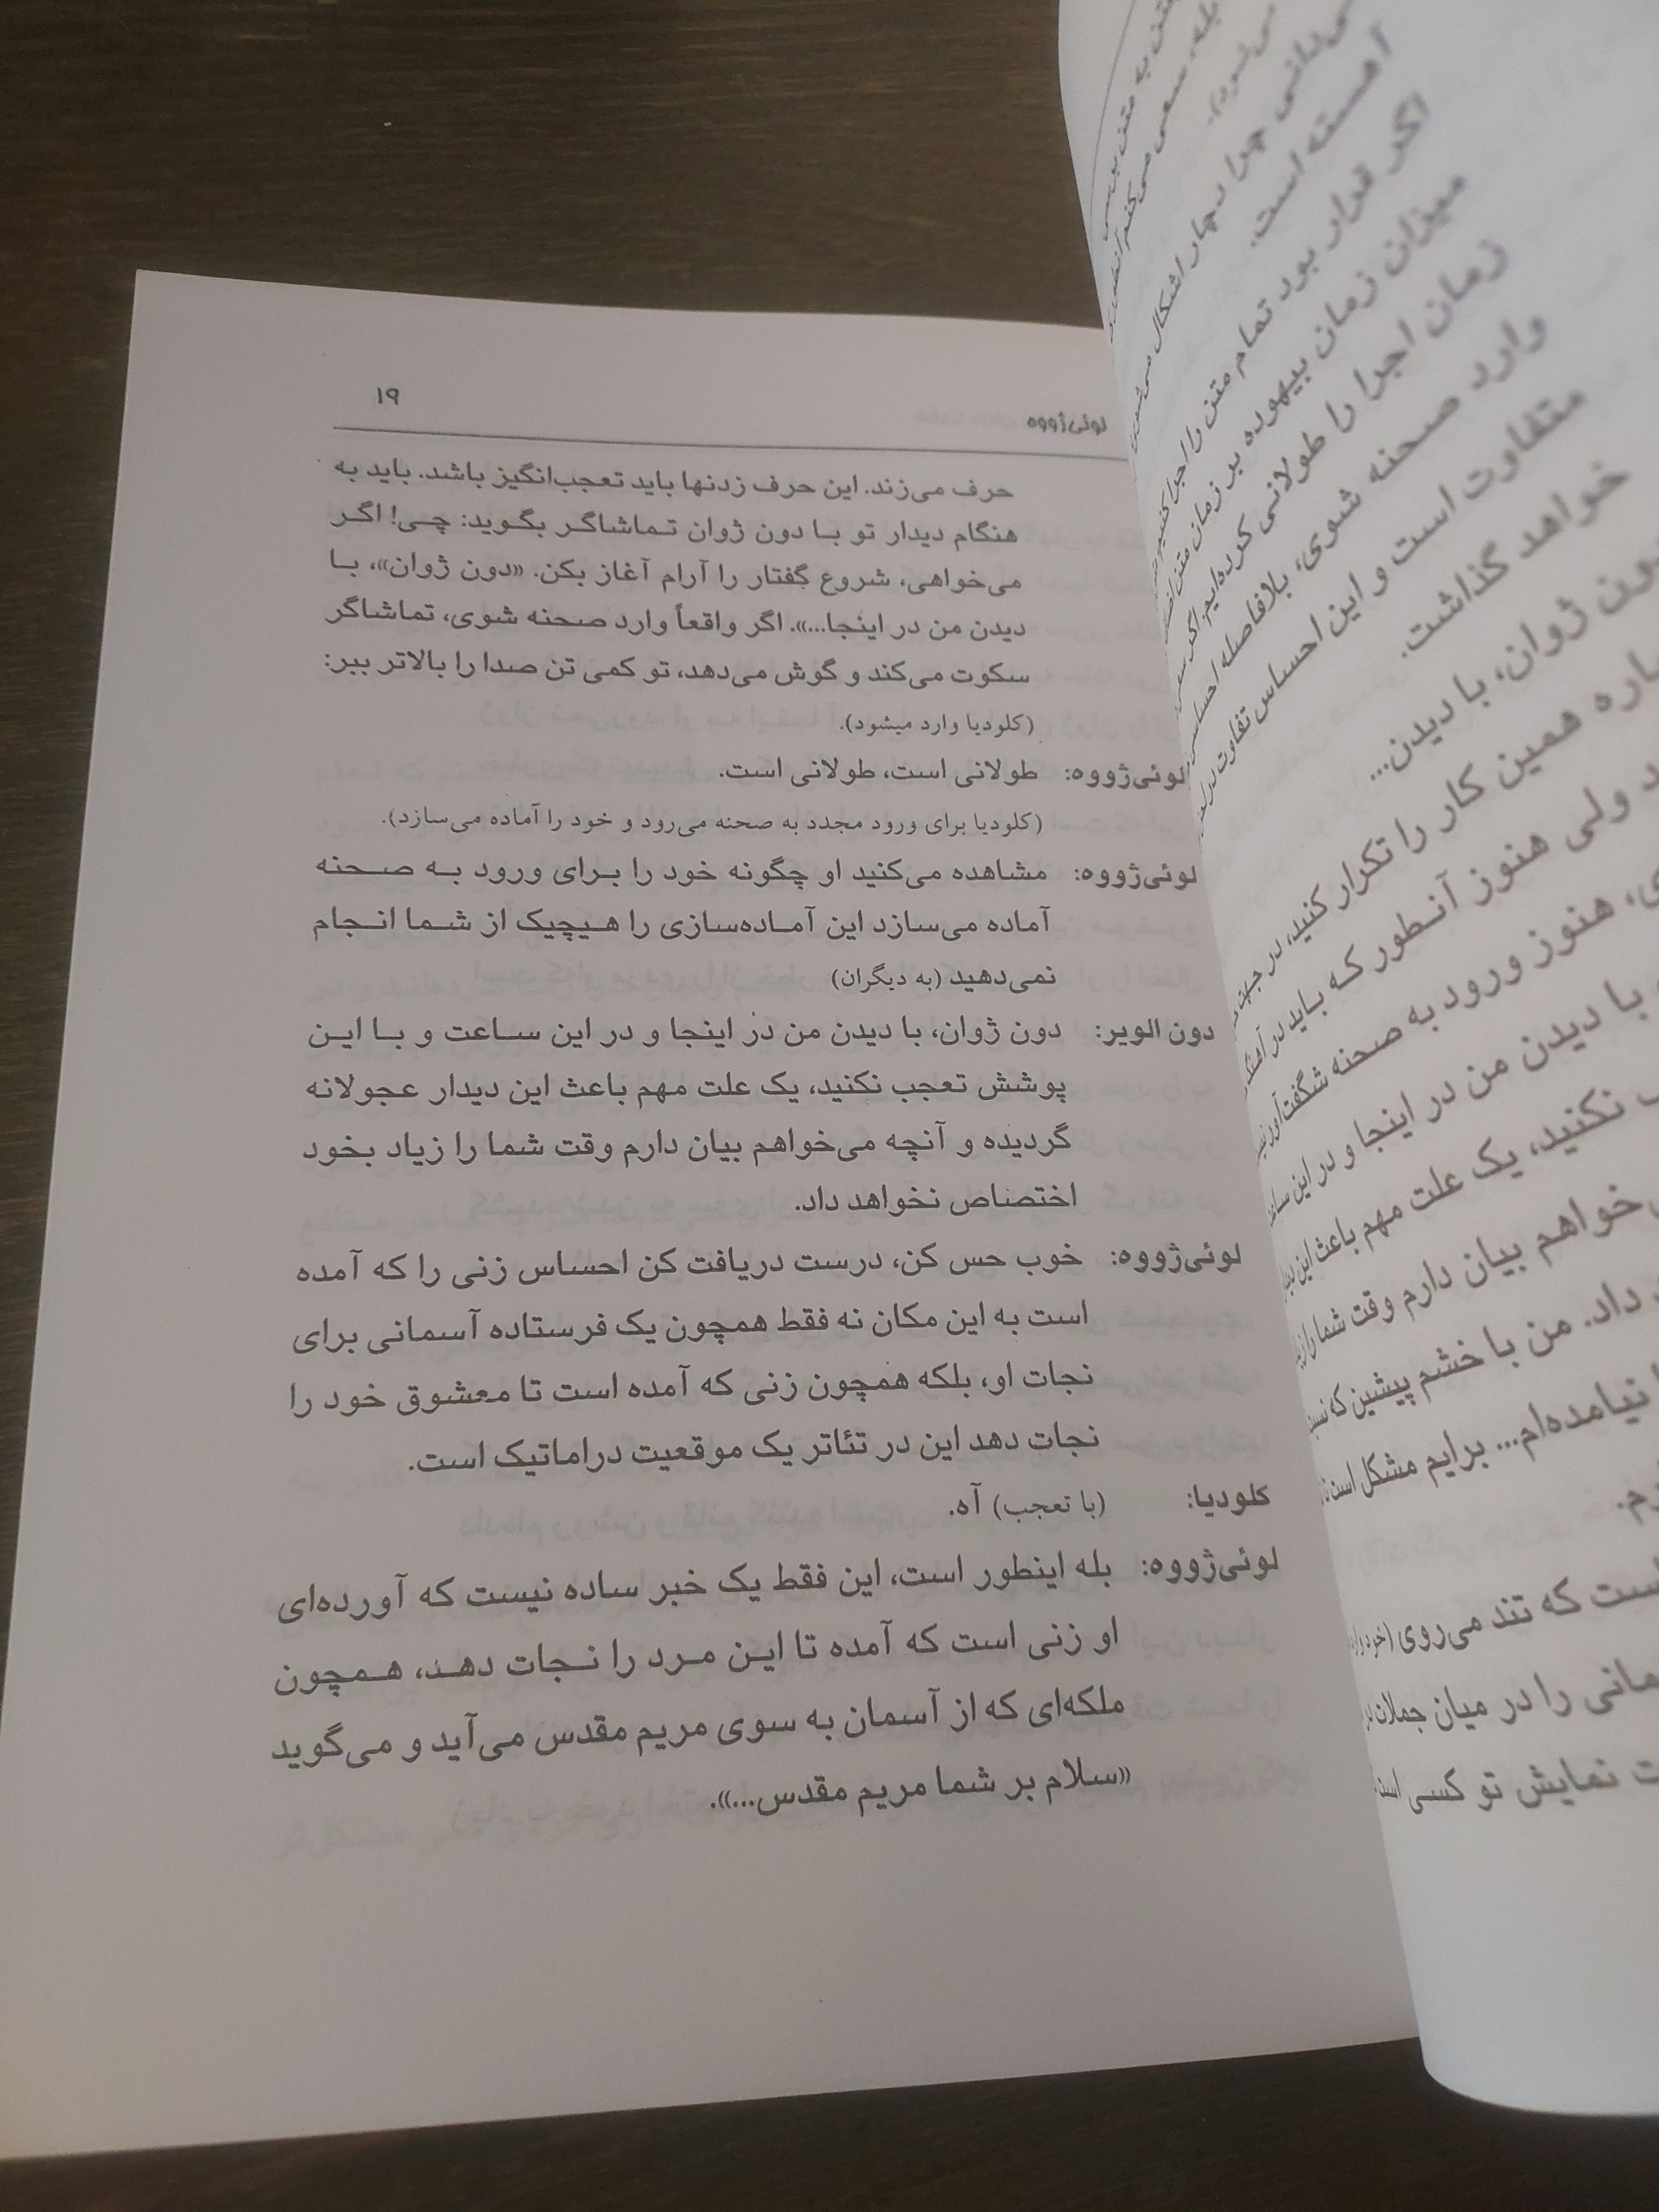 لوئی‌ژووه
۱۹
حرف می‌زند. این حرف زدنها باید تعجب‌انگیز باشد. باید به
هنگام دیدار تو با دون ژوان تماشاگر بگوید: چی! اگر
می‌خواهی، شروع گفتار را آرام آغاز بکن. «دون ژوان»، با
دیدن من در اینجا...». اگر واقعاً وارد صحنه شوی، تماشاگر
سکوت می‌کند و گوش می‌دهد، تو کمی تن صدا را بالاتر ببر:
(کلودیا وارد میشود).
لوئی‌ژووه: طولانی است، طولانی است.
(کلودیا برای ورود مجدد به صحنه می‌رود و خود را آماده می‌سازد).
لوئی‌ژووه: مشاهده می‌کنید او چگونه خود را برای ورود به صحنه
آماده می‌سازد این آماده‌سازی را هیچیک از شما انجام
نمی‌دهید (به دیگران)
دون الویر: دون ژوان، با دیدن من در اینجا و در این ساعت و با این
پوشش تعجب نکنید، یک علت مهم باعث این دیدار عجولانه
گردیده و آنچه می‌خواهم بیان دارم وقت شما را زیاد بخود
اختصاص نخواهد داد.
لوئی‌ژووه: خوب حس کن، درست دریافت کن احساس زنی را که آمده
است به این مکان نه فقط همچون یک فرستاده آسمانی برای
نجات او، بلکه همچون زنی که آمده است تا معشوق خود را
نجات دهد این در تئاتر یک موقعیت دراماتیک است.
کلودیا: (با تعجب) آه.
لوئی‌ژووه: بله اینطور است، این فقط یک خبر ساده نیست که آورده‌ای
او زنی است که آمده تا این مرد را نجات دهد، همچون
ملکه‌ای که از آسمان به سوی مریم مقدس می‌آید و می‌گوید
«سلام بر شما مریم مقدس...».
آهسته است.
اگر قرار بود تمام متن را اجرا کنیم
میزان زمان بیهوده بر زمان متن
زمان اجرا را طولانی کرده‌ایم؛ اگر
وارد صحنه شوی، بلافاصله احساس
متفاوت است و این احساس تفاوت
خواهد گذاشت.
ژوان، با دیدن...
همین کار را تکرار کنید، در جهت
ولی هنوز آنطور که باید در
هنوز ورود به صحنه شگفت‌آور
با دیدن من در اینجا و در این
نکنید، یک علت مهم باعث این
خواهم بیان دارم وقت شما را
داد. من با خشم پیشین که
نیامده‌ام... برایم مشکل است
است که تند می‌روی
را در میان جملات
نمایش تو کسی